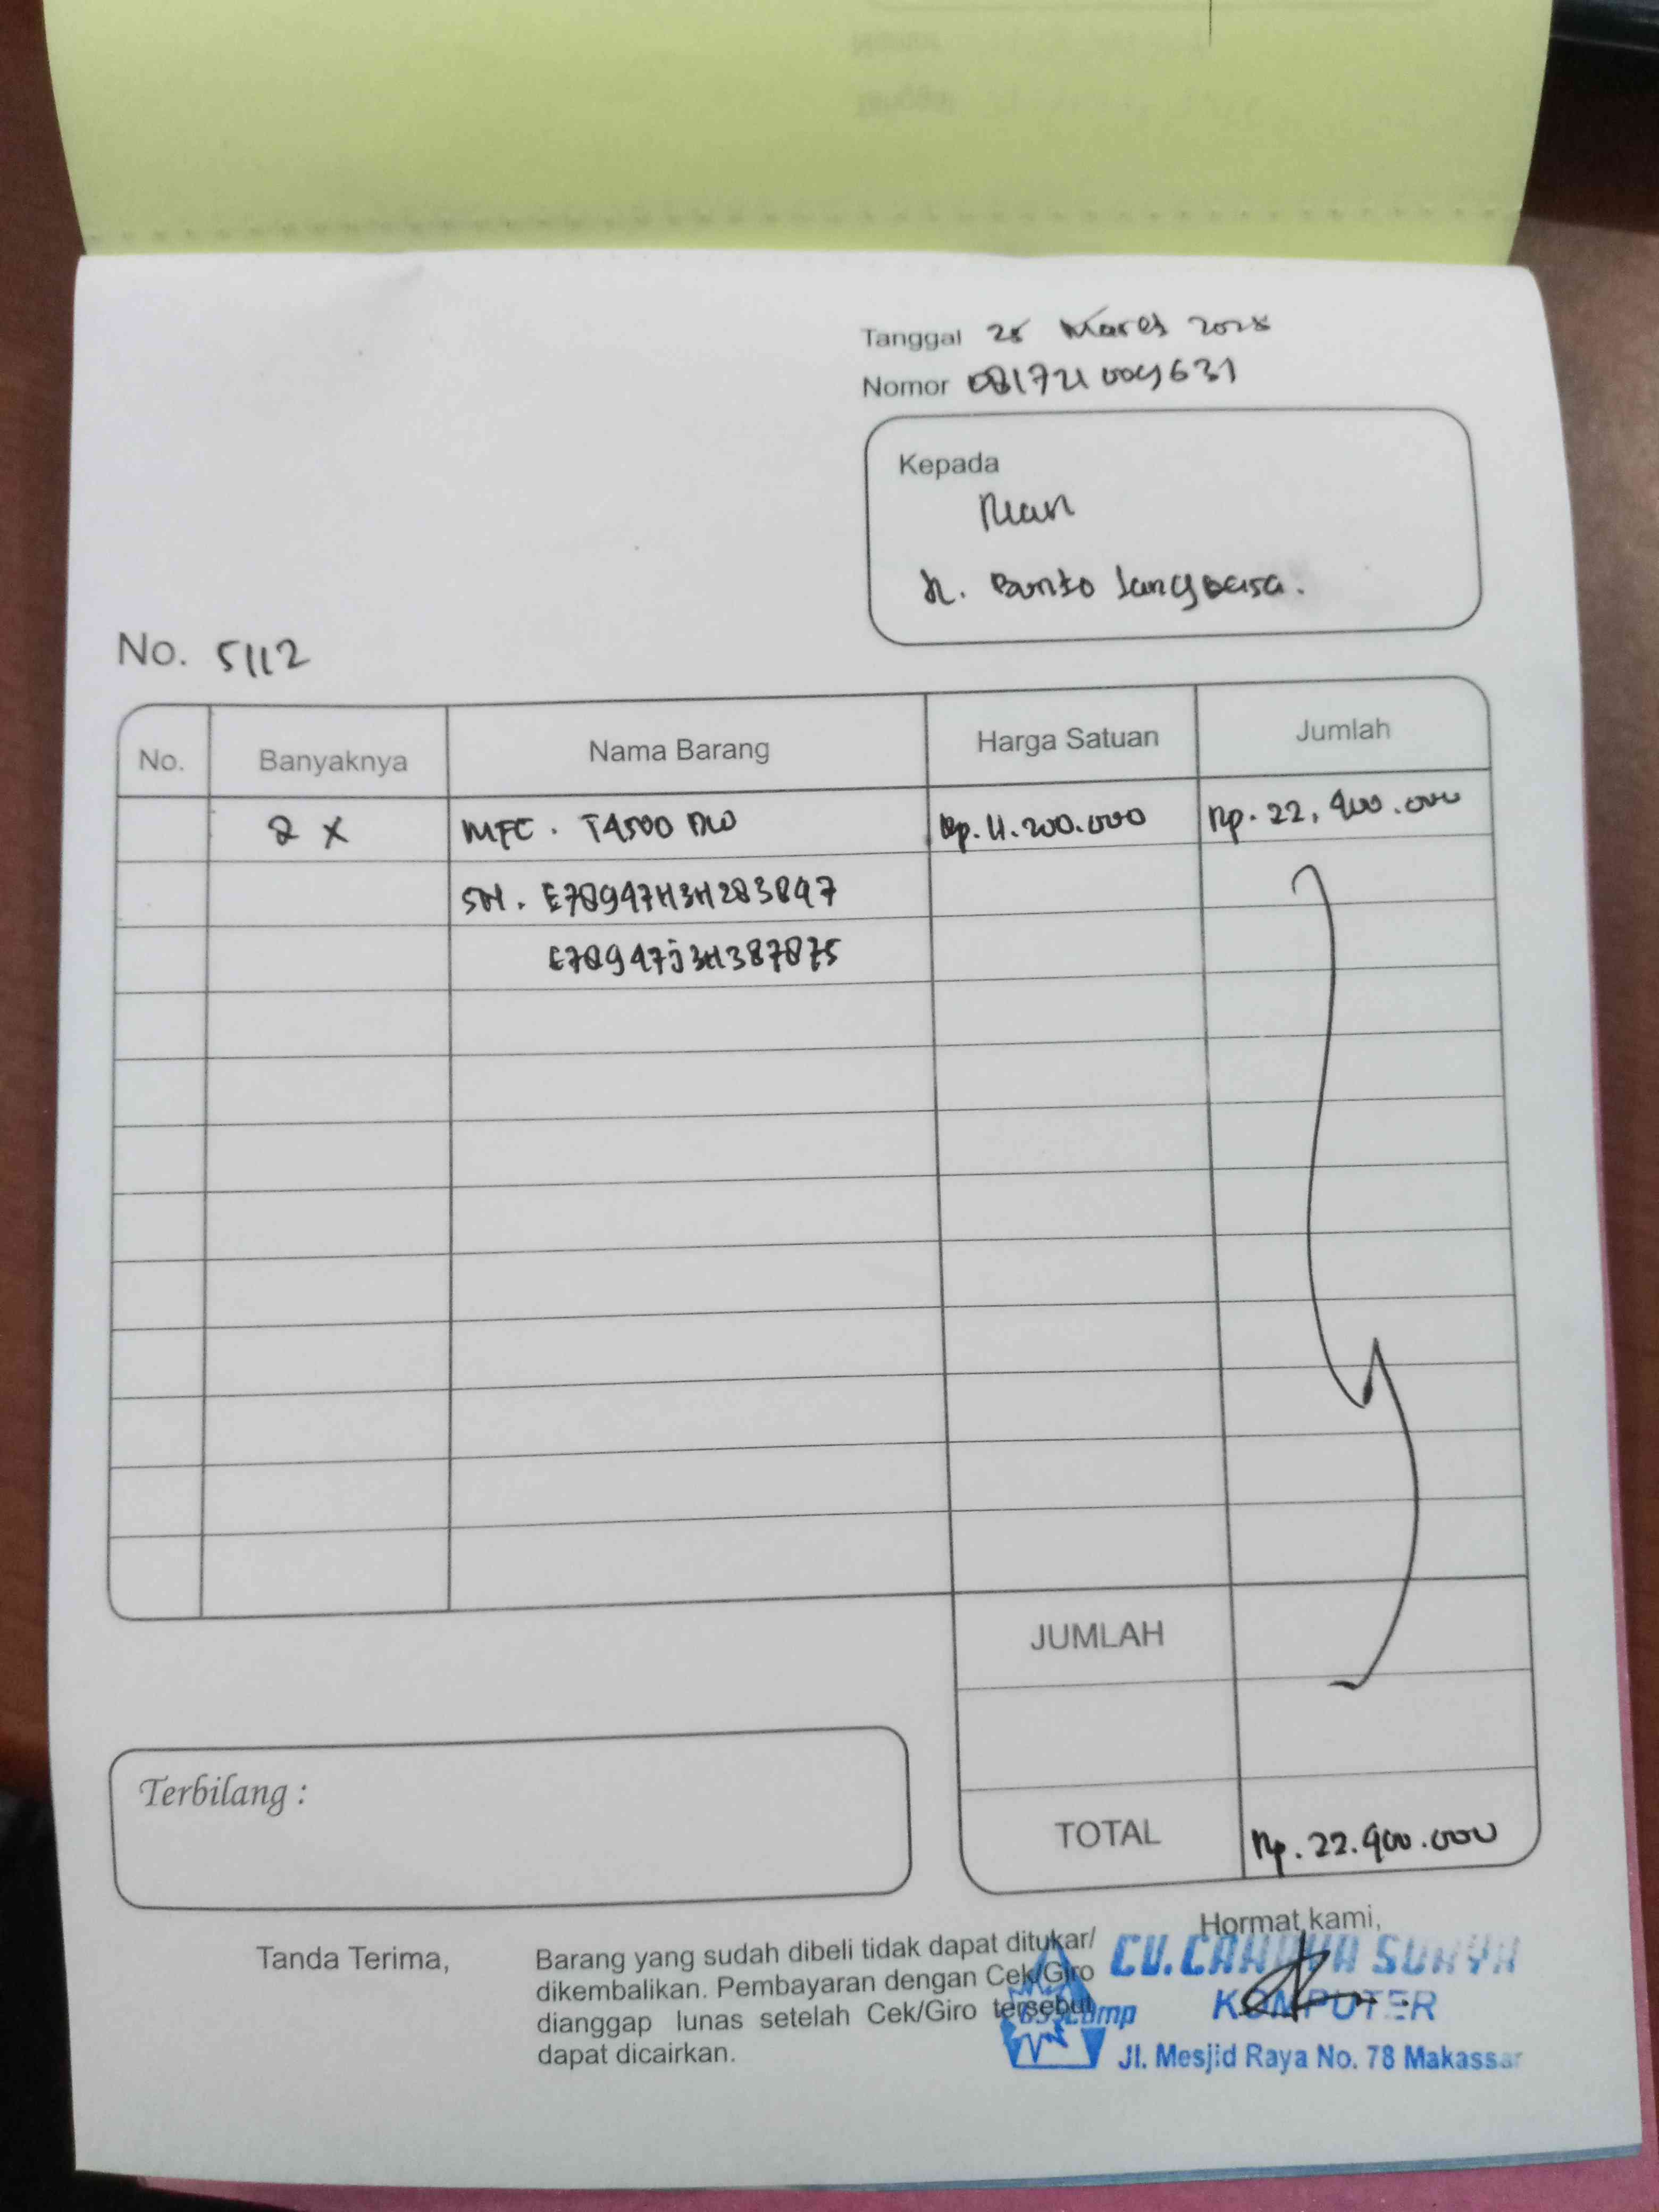 Tanggal 25 Maret
Nomor
Kepada
Jl. Bonto
No. 5112
No. Banyaknya Nama Barang Harga Satuan Jumlah
2 X MFC. T4500 DW Rp. 11.200.000 Rp. 22,400.000
SN. E78947H3H283847
E78947J3H387875
JUMLAH
Terbilang :
TOTAL Rp. 22.400.000
Hormat kami,
Tanda Terima,
Barang yang sudah dibeli tidak dapat ditukar/
dikembalikan. Pembayaran dengan Cek/Giro
dianggap lunas setelah Cek/Giro tersebut
dapat dicairkan.
CV. CAHAYA SURYA
KOMPUTER
Jl. Mesjid Raya No. 78 Makassar